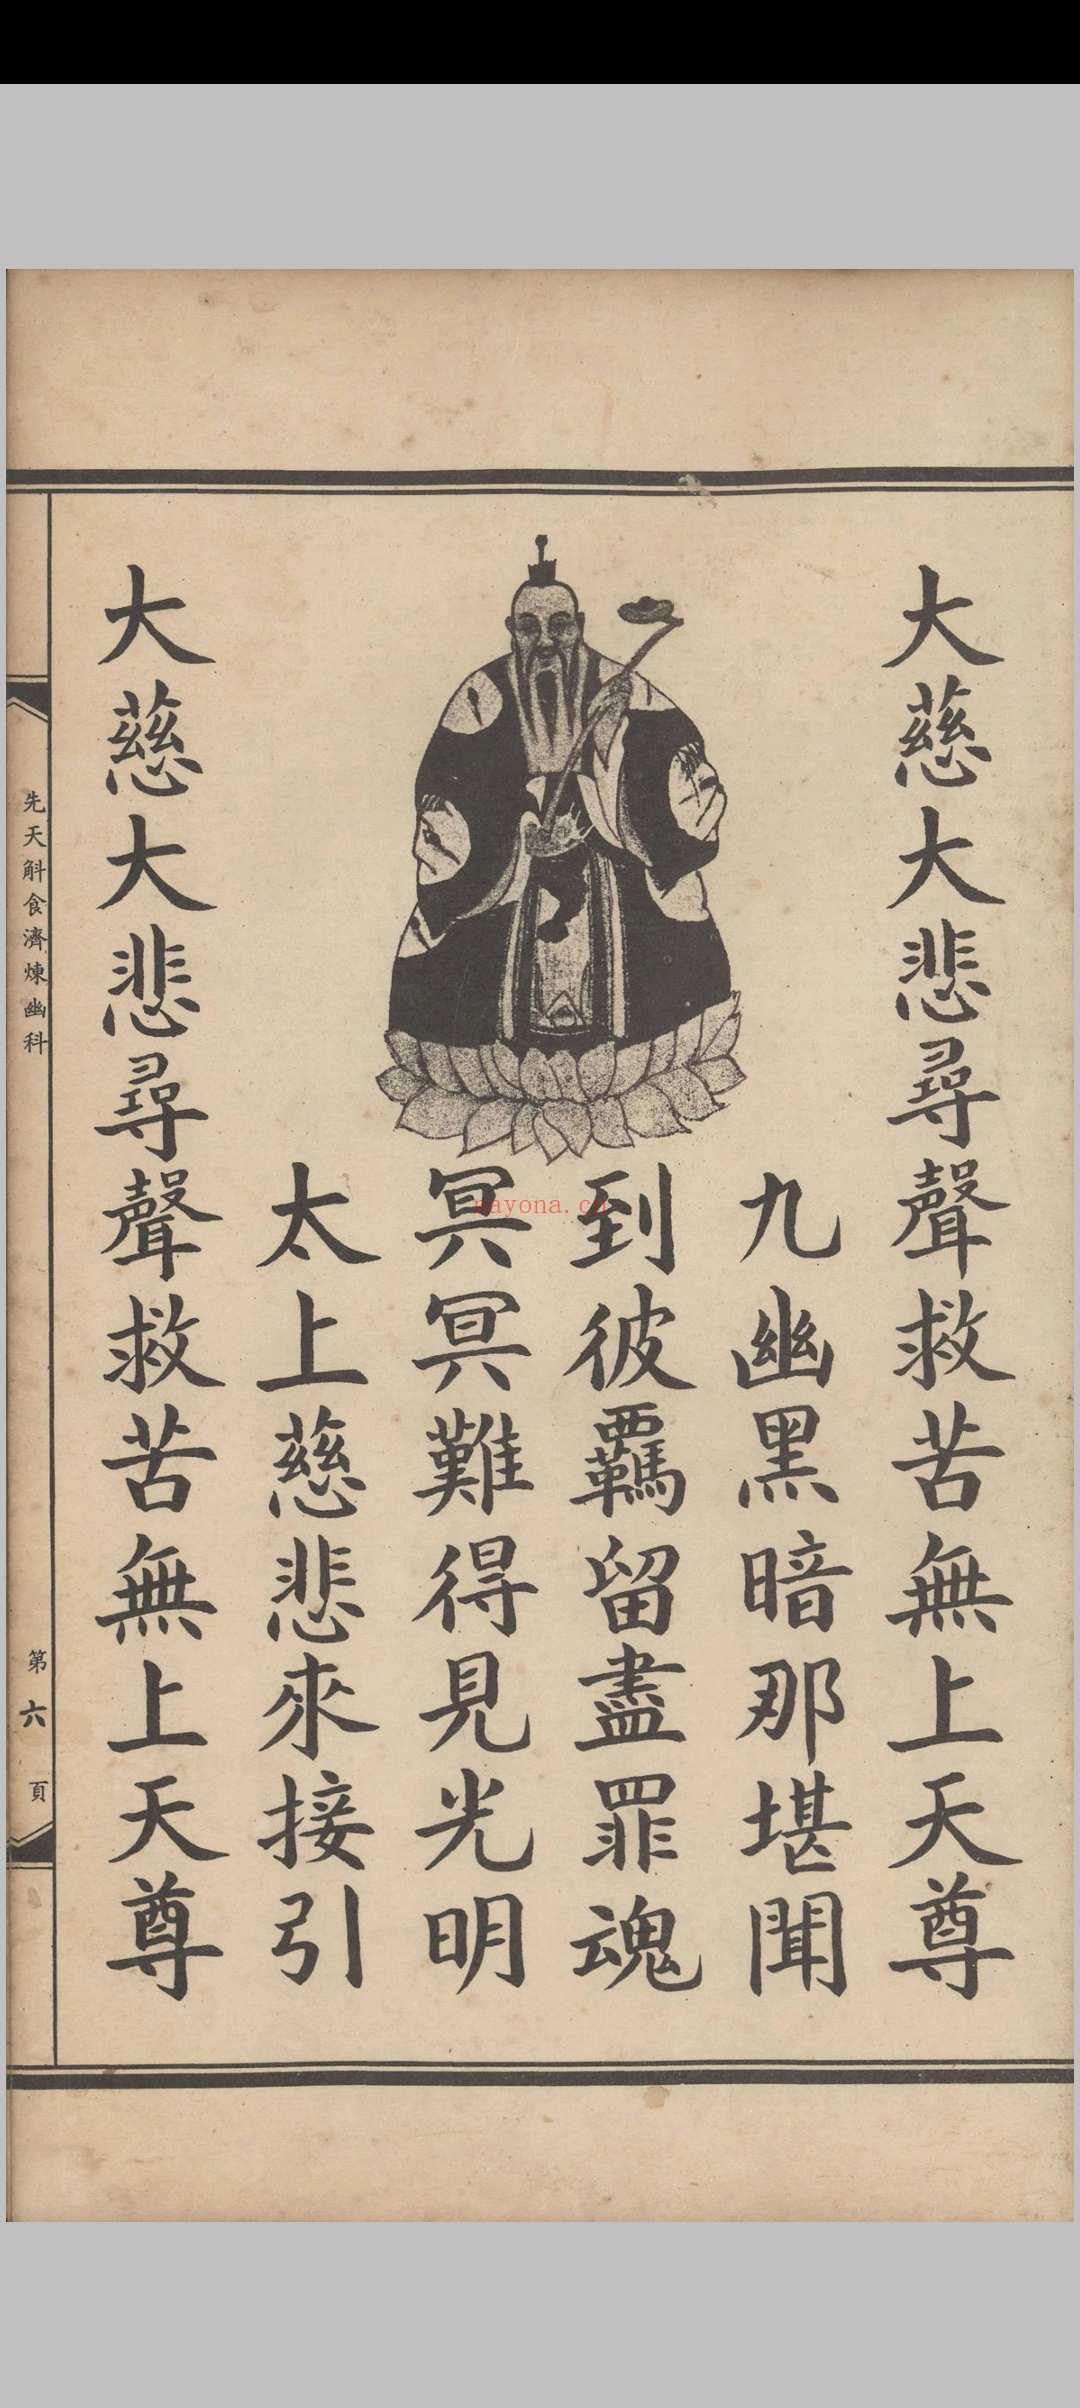 大慈大悲尋聲救苦無上天尊
九幽黑暗那堪聞
到彼羈留盡罪魂
冥冥難得見光明
太上慈悲來接引
大慈大悲尋聲救苦無上天尊
先天斛食濟煉幽科
第六頁
nayona.cn